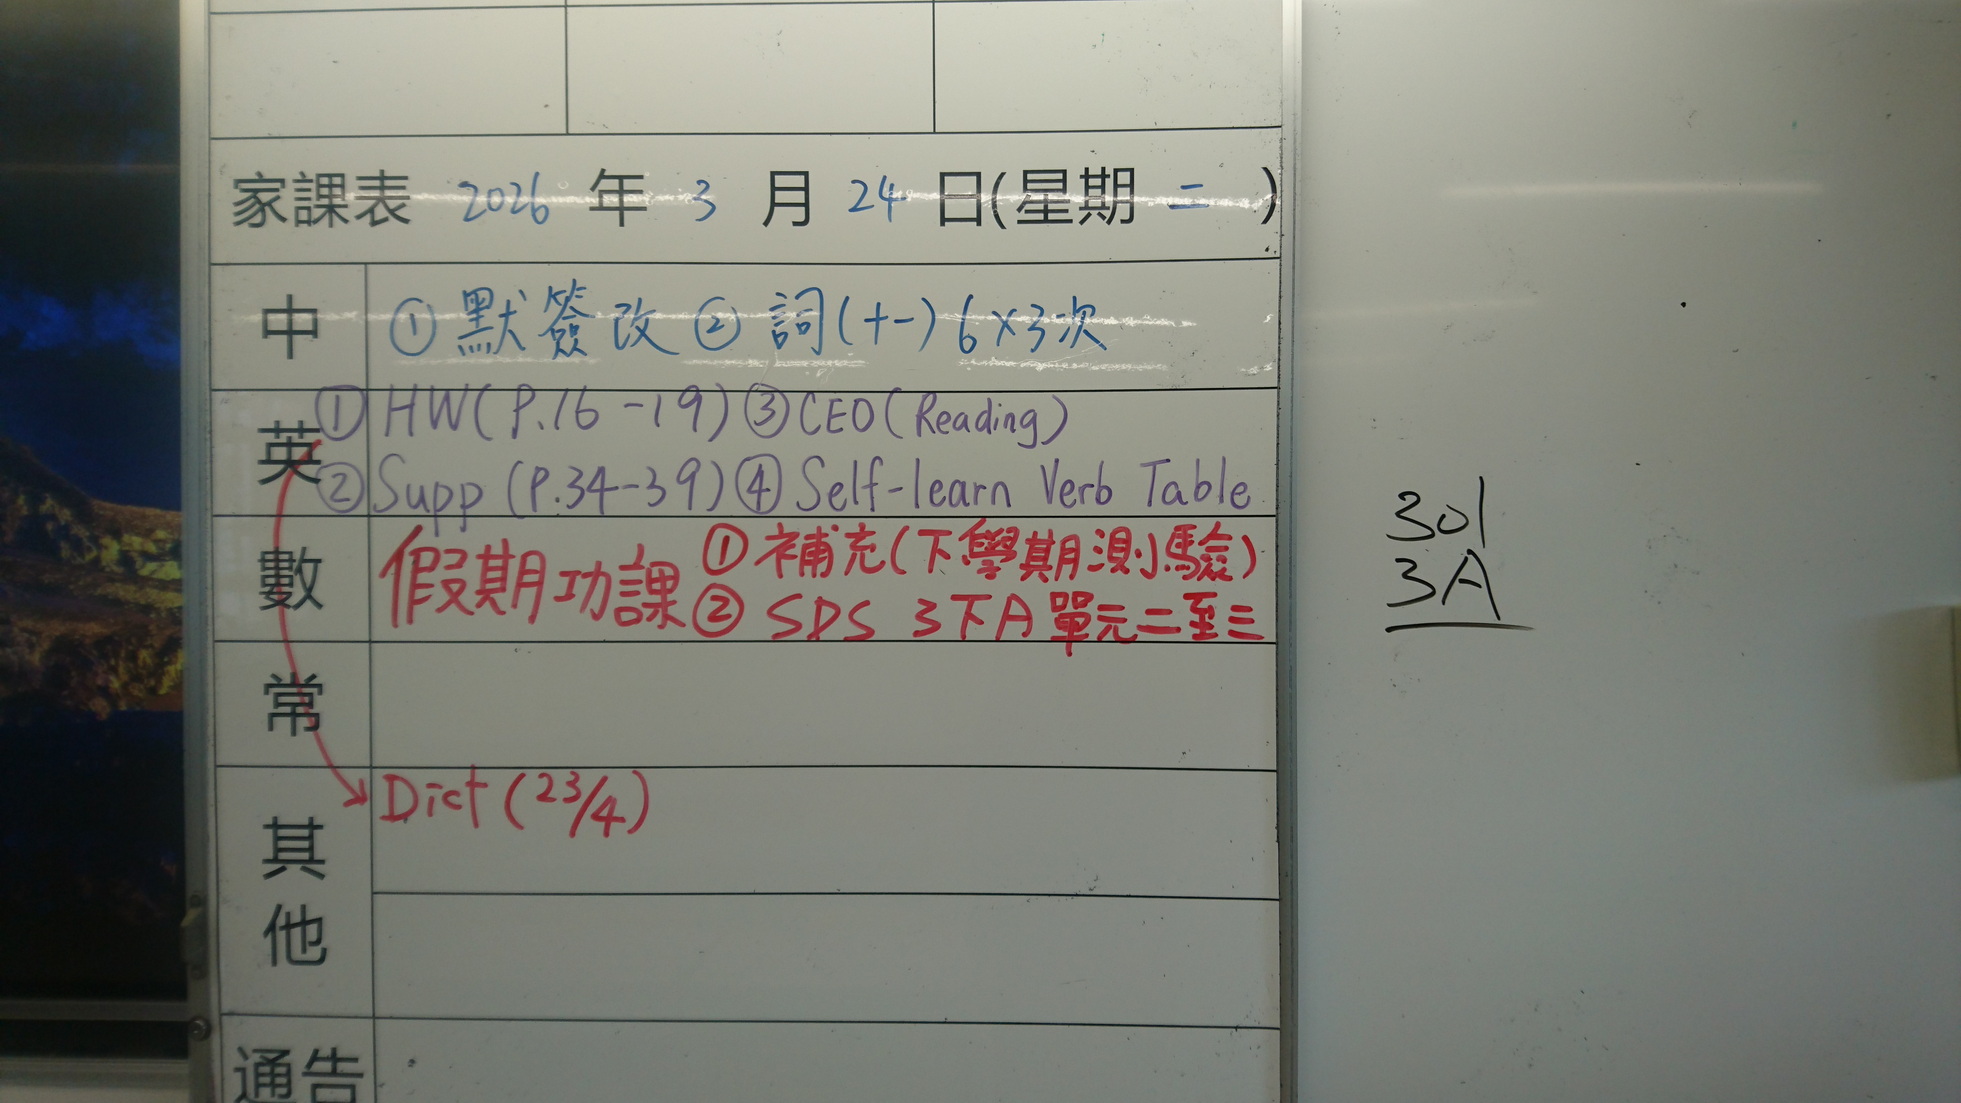 家課表 2026 年 3 月 24 日(星期 二 )
中 ① 默簽改 ② 詞(十一) 6×3次
英 ① HW(P.16-19) ③ CEO(Reading)
② Supp (P.34-39) ④ Self-learn Verb Table
數 假期功課 ① 補充(下學期測驗)
② SDS 3下A 單元二至三
常
其他 Dict (23/4)
通告
301
3A